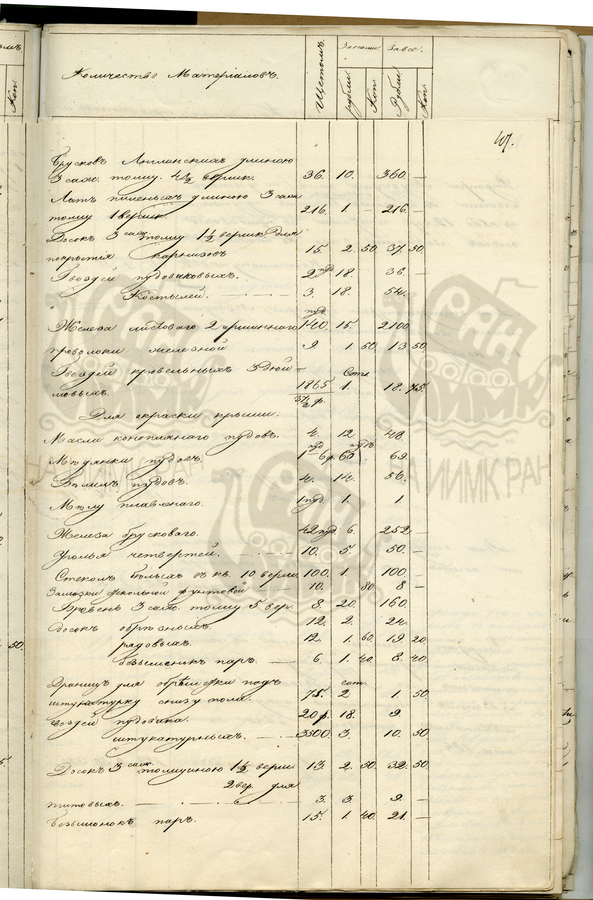 Количество Матеріаловъ. Щетомъ. За них. За все.
Рубли Коп. Рубли Коп.
107.
Брусковъ длиною
3 саж. толщ. 4 1/2 вершк. 36. 10. 360. —
Латъ пиленыхъ длиною 3 саж.
толщ. 1 вершк. 216. 1. — 216. —
Досокъ 3 саж. толщ. 1 1/2 вершк. для
покрытія карнизовъ 15. 2. 50. 37. 50
Гвоздей пудовиковыхъ. 2 пуд 18. 36. —
Костылей. 3. 18. 54. —
пуд.
Железа листоваго 2 аршиннаго 140. 15. 2100
проволоки железной 9 1. 50. 13 50
Гвоздей кровельныхъ 3 дюй- Сотн.
мовыхъ. 1865 1. 18. 75.
Для окраски крыши.
Масла коноплянаго пудовъ. 4. 12. 48.
Мѣдянки пудовъ. 60. 69.
Бѣлилъ пудовъ. 4. 14. 56.
Мѣлу плавленаго. 1 пуд. 1. 1
Железа брусковаго. 42 пуд. 6. 252 —
Уголья четвертей. 10. 5. 50. —
Стеколъ бѣлыхъ въ кв. 10 верш. 100. 1. 100 —
Замазки фунтовъ 10. 80 8 —
Бревенъ 3 саж. толщ. 5 вер. 8. 20. 160.
досокъ обрѣзныхъ. 12. 2. 24.
рядовыхъ. 12. 1. 60. 19 20
безыменокъ паръ. 6. 1. 40. 8. 40
Драницъ для обрѣшетки подъ сот.
штукатурку снизу пола. 75. 2 1 50
Гвоздей пудовика. 20 ф. 18. 9.
штукатурныхъ. 3500. 3. 10. 50
Досокъ 3 саж. толщиною 1 1/2 верш. 13. 2. 50. 32. 50
2 вер. для
типовыхъ. 3. 3. 9. —
Безыменокъ паръ. 15. 1. 40. 21. —
НА ИИМК РАН
НА ИИМК РАН